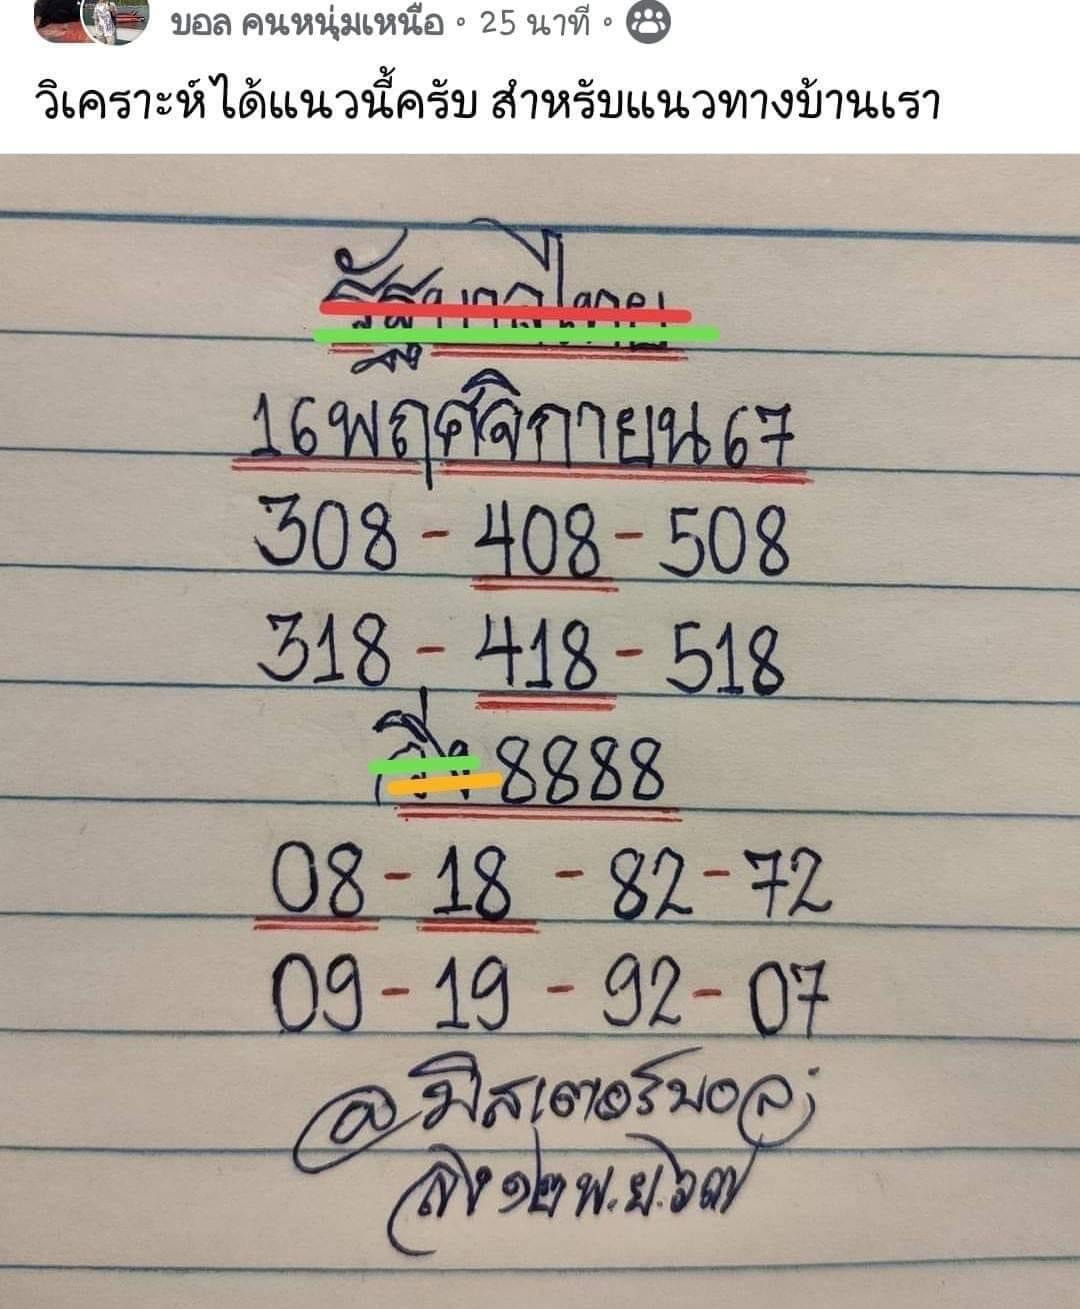 บอล คนหนุ่มเหนือ • 25 นาที •
วิเคราะห์ได้แนวนี้ครับ สำหรับแนวทางบ้านเรา
รัฐบาลไทย
16 พฤศจิกายน 67
308 - 408 - 508
318 - 418 - 518
8888
08 - 18 - 82 - 72
09 - 19 - 92 - 07
@มิสเตอร์บอล;
ลง ๑๒ พ.ย. ๖๗